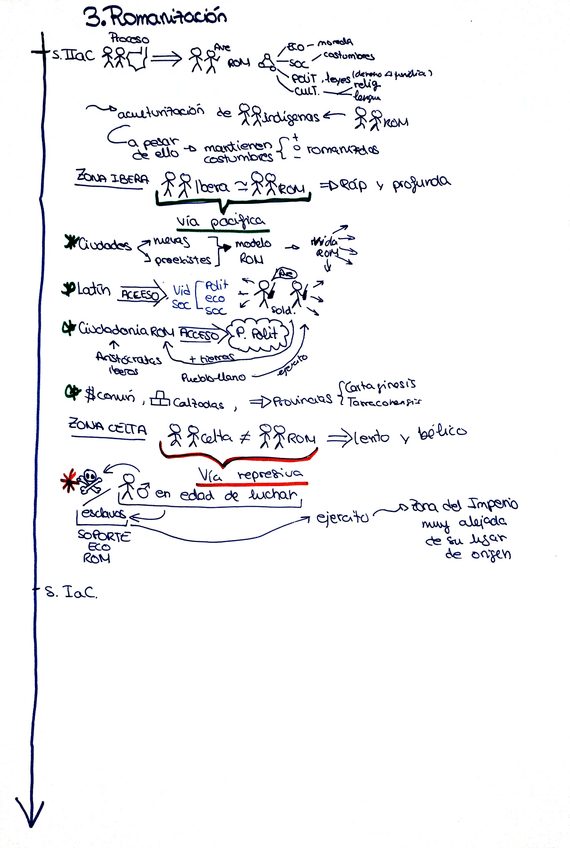 3. Romanización
Proceso
S. IIaC ⇒ Ave ROM
ECO - moneda
SOC costumbres
POLIT, leyes (derecho familia)
CULT. relig
lengua
aculturización de indígenas ← ROM
a pesar de ello → mantienen costumbres { + o - romanizados
ZONA IBERA Ibera ≃ ROM ⇒ Ráp y profunda
vía pacífica
* Ciudades nuevas
preexistes
modelo ROM → vida ROM
* Latín ACCESO Vid SOC
Polit
eco
soc
Ave
sold.
* Ciudadanía ROM ACCESO P. Polit
Aristócratas iberos
+ tierras
Pueblo llano
ejército
* $ común, Calzadas, ⇒ Provincias { Cartaginesis
Tarraconensis
ZONA CELTA celta ≠ ROM ⇒ lento y bélico
Vía represiva
* ♂ en edad de luchar
esclavos
SOPORTE
ECO
ROM
ejercito → Zona del Imperio
muy alejada
de su lugar
de origen
S. IaC.